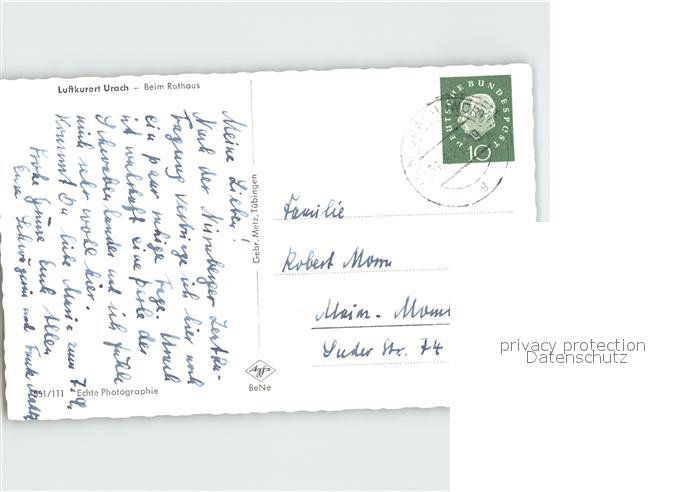 Luftkurort Urach – Beim Rathaus
Meine Lieben!
Nach der Nürnberger
Tagung verbringe ich hier noch
ein paar ruhige Tage. Urach
ist wahrhaft eine Perle des
Schwabenlandes und ich fühle
mich sehr wohl hier.
Kommst Du liebe Maria zum 7.9.
Frohe Grüsse Euch Allen
Eure Schwägerin und Tante
Gebr. Metz, Tübingen
DEUTSCHE BUNDESPOST
10
Familie
Robert
Mainz-
Str. 74
BeNe
51/111 Echte Photographie
privacy protection
Datenschutz